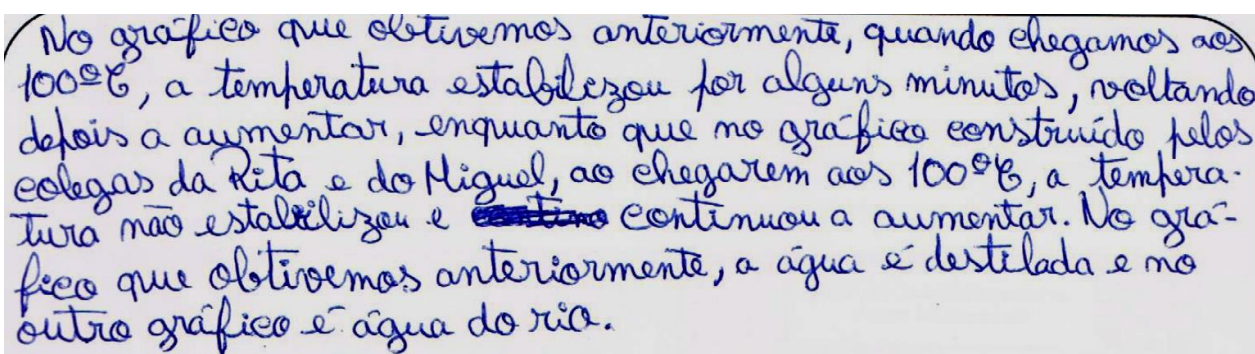 No gráfico que obtivemos anteriormente, quando chegamos aos
100ºC, a temperatura estabilizou por alguns minutos, voltando
depois a aumentar, enquanto que no gráfico construído pelos
colegas da Rita e do Miguel, ao chegarem aos 100ºC, a tempera-
tura não estabilizou e continuou a aumentar. No grá-
fico que obtivemos anteriormente, a água é destilada e no
outro gráfico é água do rio.